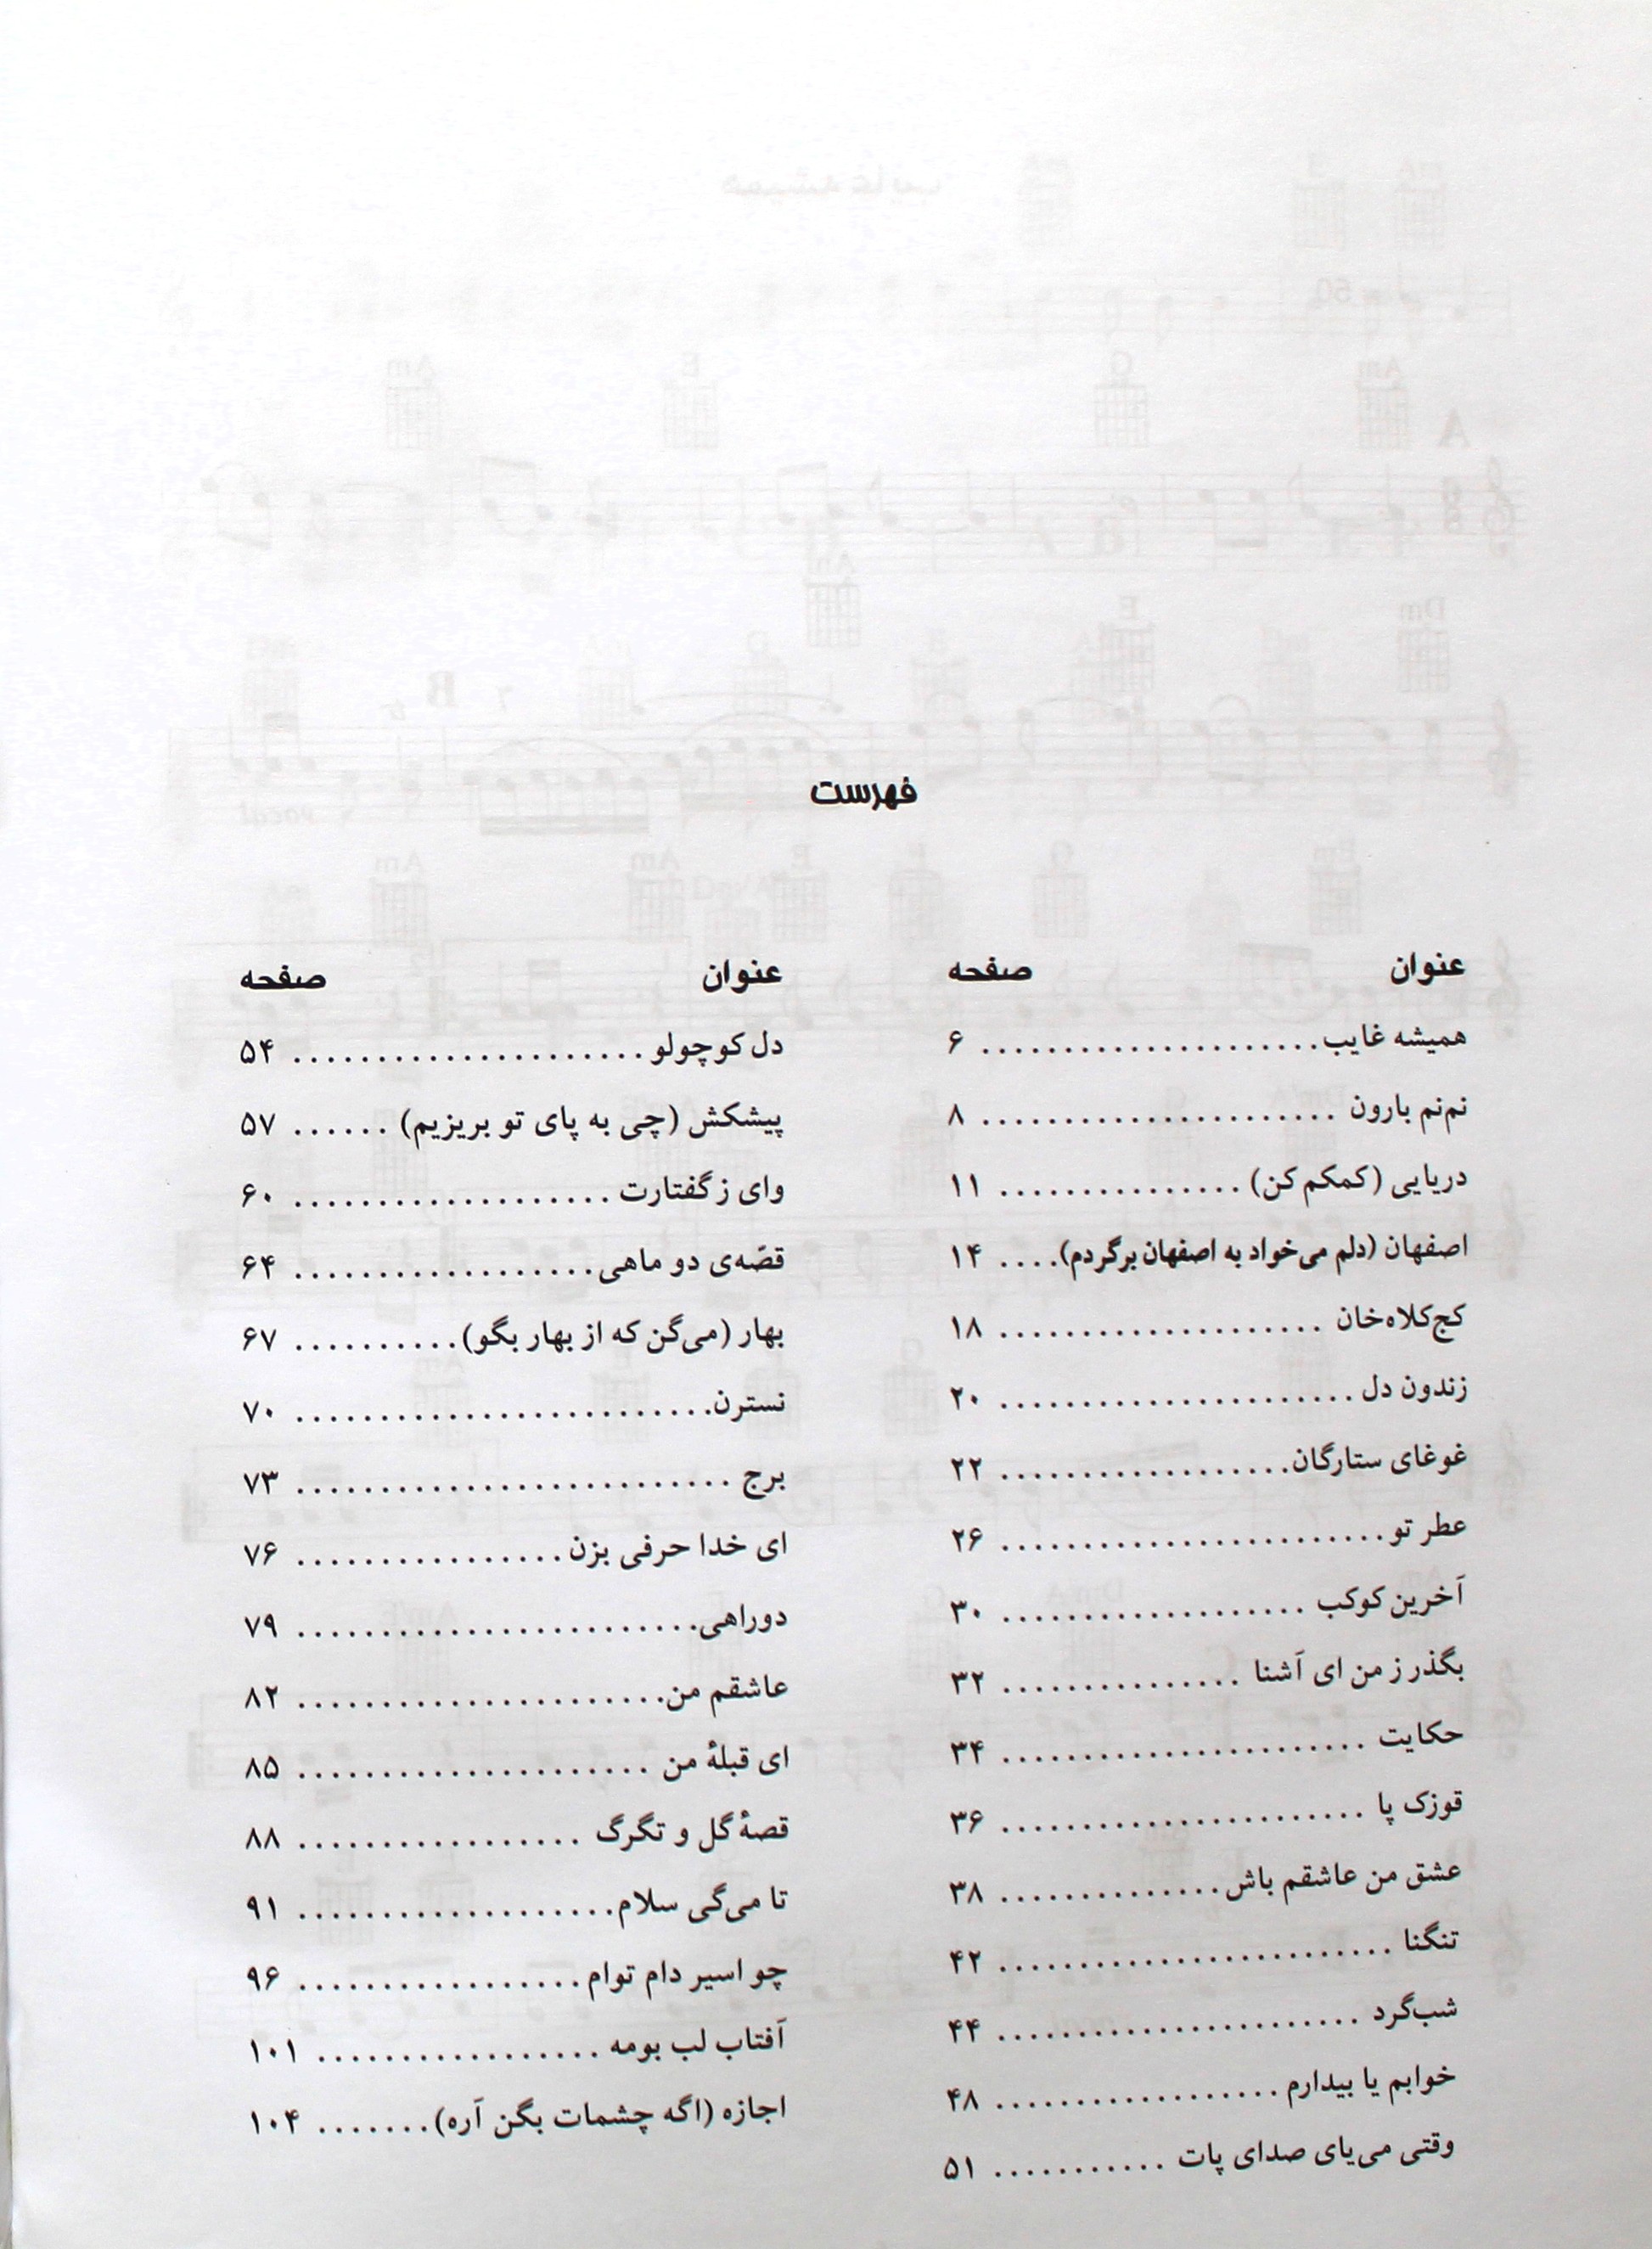 فهرست
عنوان صفحه
همیشه غایب ..................... ۶
نم‌نم بارون ...................... ۸
دریایی (کمکم کن) ............... ۱۱
اصفهان (دلم می‌خواد به اصفهان برگردم) .... ۱۴
کج‌کلاه‌خان .................... ۱۸
زندون دل ...................... ۲۰
غوغای ستارگان .................. ۲۲
عطر تو ....................... ۲۶
آخرین کوکب ................... ۳۰
بگذر ز من ای آشنا ............... ۳۲
حکایت ...................... ۳۴
قوزک پا ...................... ۳۶
عشق من عاشقم باش .............. ۳۸
تنگنا ........................ ۴۲
شب‌گرد ...................... ۴۴
خوابم یا بیدارم .................. ۴۸
وقتی می‌یای صدای پات ........... ۵۱
عنوان صفحه
دل کوچولو ...................... ۵۴
پیشکش (چی به پای تو بریزیم) ...... ۵۷
وای ز گفتارت ................... ۶۰
قصّه‌ی دو ماهی .................. ۶۴
بهار (می‌گن که از بهار بگو) .......... ۶۷
نسترن ......................... ۷۰
برج .......................... ۷۳
ای خدا حرفی بزن ................ ۷۶
دوراهی ........................ ۷۹
عاشقم من ...................... ۸۲
ای قبلهٔ من ..................... ۸۵
قصهٔ گل و تگرگ ................. ۸۸
تا می‌گی سلام ................... ۹۱
چو اسیر دام توام ................. ۹۶
آفتاب لب بومه ................. ۱۰۱
اجازه (اگه چشمات بگن آره) ....... ۱۰۴